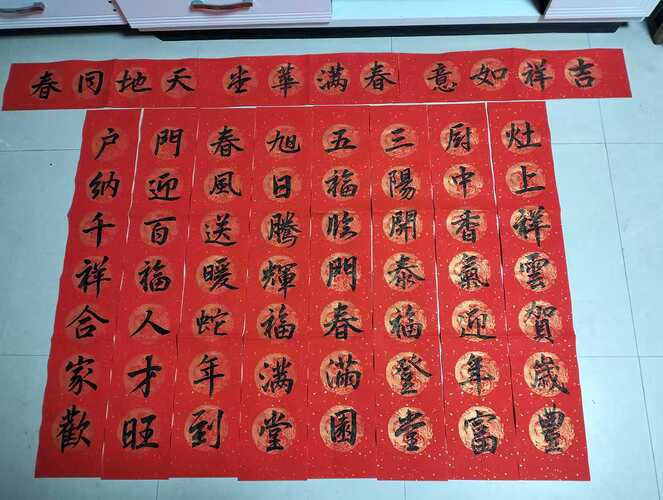 吉祥如意
春满華坣
天地同春
灶上祥雲賀歲豊
厨中香氣迎年富
三陽開泰福登堂
五福临門春滿園
旭日騰輝福满堂
春風送暖蛇年到
門迎百福人才旺
户納千祥合家歡